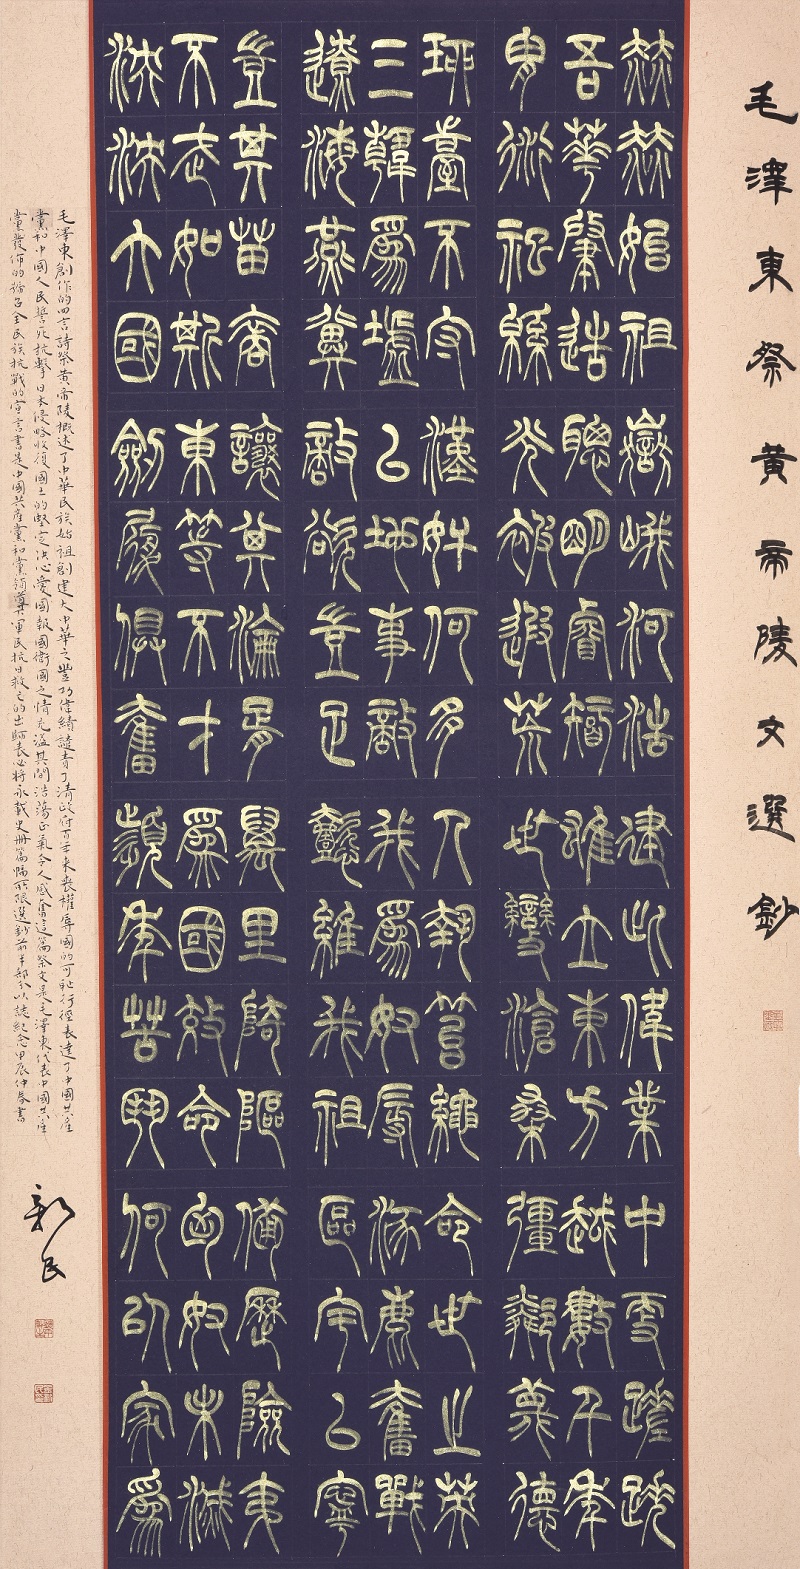 毛澤東祭黃帝陵文選鈔
赫赫始祖
吾華肇造
胄衍祀緜
嶽峨河浩
聰明睿智
光被遐荒
建此偉業
雄立東方
世變滄桑
中更蹉跌
越數千年
彊鄰蔑德
琉臺不守
三韓爲墟
遼海燕冀
漢奸何多
以地事敵
敵欲豈足
人執笞繩
我爲奴辱
懿維我祖
命世之英
涿鹿奮戰
區宇以寧
豈其苗裔
不武如斯
泱泱大國
讓其淪胥
東等不才
劍履俱奮
萬里崎嶇
爲國效命
頻年苦鬥
備歷險夷
匈奴未滅
何以家爲
毛澤東創作的四言詩祭黃帝陵概述了中華民族始祖創建大中華之豐功偉績譴責了清政府百年來喪權辱國的可恥行徑表達了中國共産
黨和中國人民誓死抗擊日本侵略收復國土的堅定決心愛國報國衛國之情充溢其間浩蕩正氣令人感奮這篇祭文是毛澤東代表中國共産
黨發佈的號召全民族抗戰的宣言書是中國共産黨和黨領導其軍民抗日救亡的出師表必將永載史冊篇幅所限選鈔前半部分以誌紀念甲辰仲春書
新民